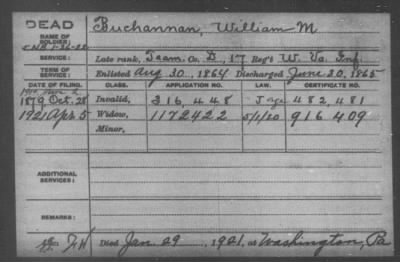 DEAD
NAME OF SOLDIER: Buchannan, William M
SERVICE: Late rank, Team. Co. D, 17 Reg't W. Va. Inf.
TERM OF SERVICE: Enlisted Aug 30, 1864 Discharged June 30, 1865
DATE OF FILING. CLASS. APPLICATION NO. LAW. CERTIFICATE NO.
1879 Oct. 28 Invalid, 316,448 482,481
1921 Apr 5 Widow, 1172422 5/1/20 916409
Minor,
ADDITIONAL SERVICES:
REMARKS:
Died Jan 29, 1921, at Washington, Pa